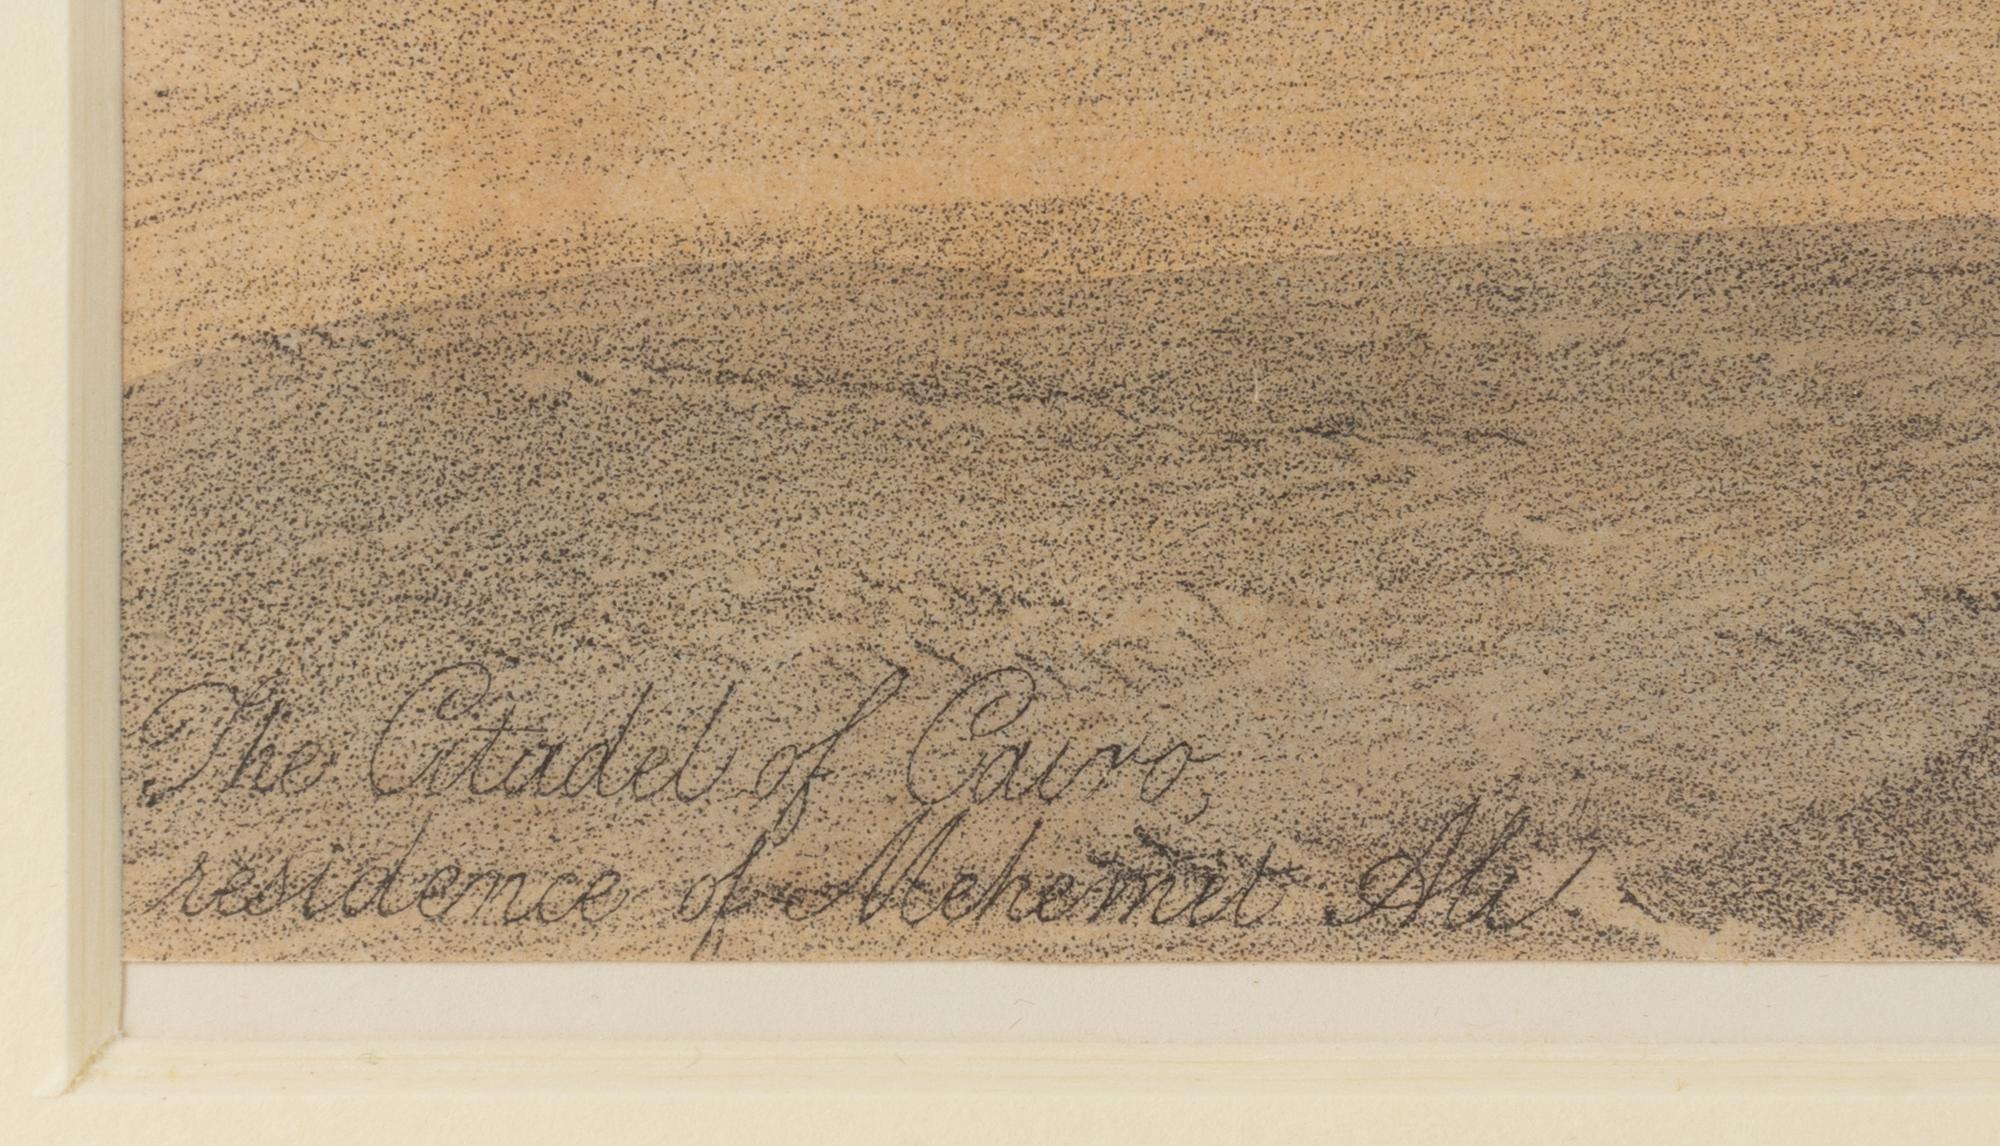 The Citadel of Cairo,
residence of Mehemet Ali